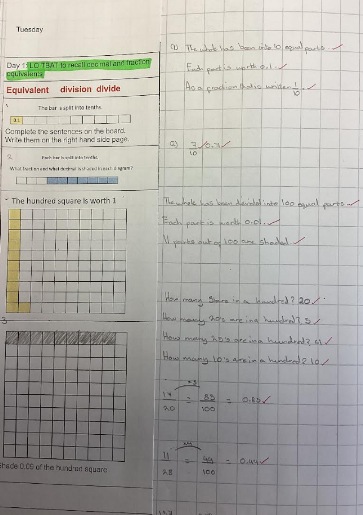 Tuesday
Day 1: LO TBAT to recall decimal and fraction
equivalents
Equivalent division divide
1.
The bar is split into tenths.
0.1
Complete the sentences on the board.
Write them on the right hand side page.
2.
Each bar is split into tenths.
What fraction and what decimal is shaded in each diagram?
The hundred square is worth 1
3
Shade 0.09 of the hundred square
Q) The whole has been into 10 equal parts.
Each part is worth 0.1.
As a fraction this is written 1/10.
Q) 7/10 0.7
The whole has been divided into 100 equal parts
Each part is worth 0.01.
11 parts out of 100 are shaded
How many 5s are in a hundred? 20
How many 20's are in a hundred? 5
How many 25's are in a hundred? 4
How many 10's are in a hundred? 10
×5
17/20 = 85/100 = 0.85
×4
11/25 = 44/100 = 0.44